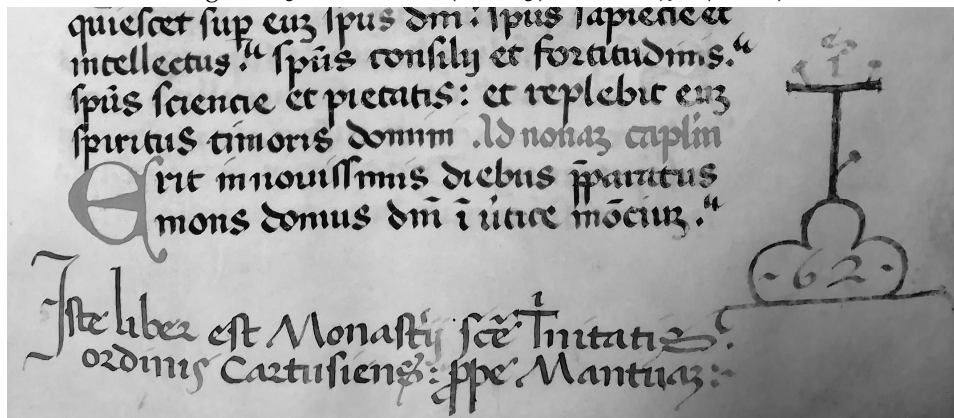 quiescet sup euz spūs dm̄: spūs sapiēcie et
intellectus: spūs consilij et fortitudinis.
spūs sciencie et pietatis: et replebit euz
spiritus timoris domini .Ad nonaz caplm
Erit in nouissimis diebus pparatus
mons domus dm̄ ī ūtice mōciuz.
1
- 62 -
Iste liber est Monastīj scē Trinitatis.
ordinis Cartusiens: ppe Mantuaz: